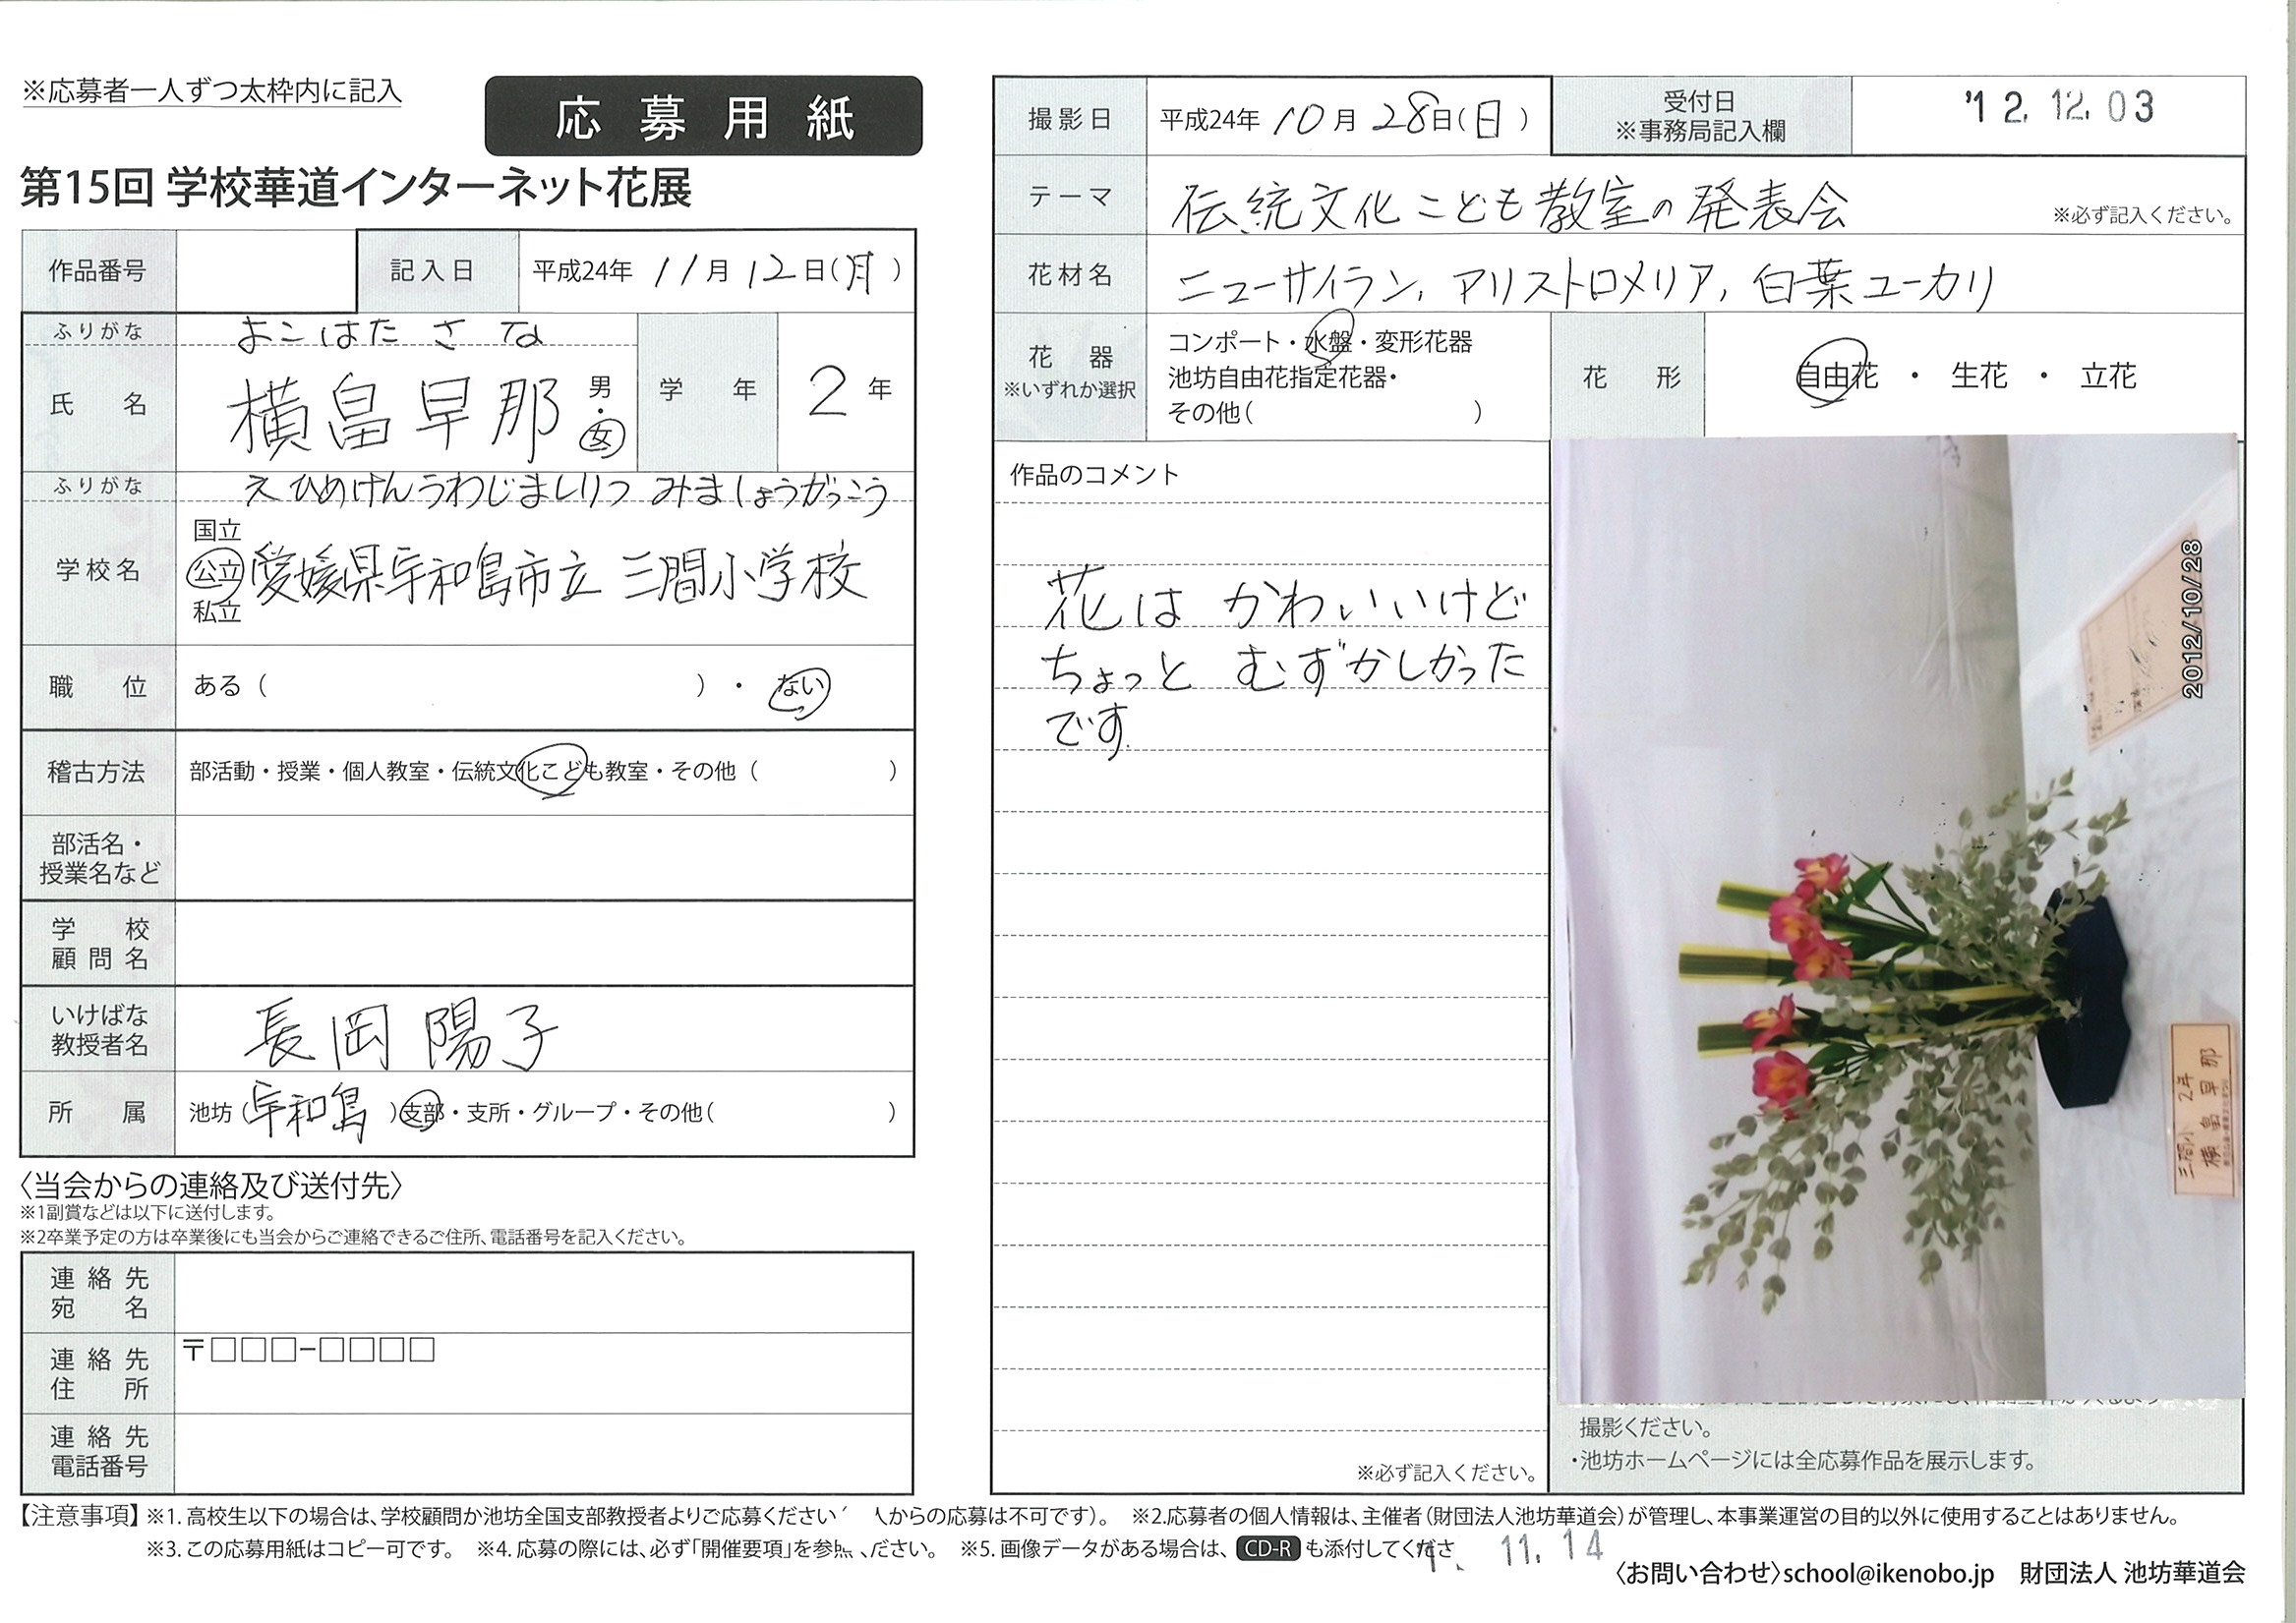 ※応募者一人ずつ太枠内に記入
応募用紙
第15回 学校華道インターネット花展
作品番号
記入日 平成24年 11月12日(月)
ふりがな よこはた さな
氏名 横畠早那 男・女
学年 2年
ふりがな えひめけんうわじましりつ みましょうがっこう
学校名 国立 公立 私立 愛媛県宇和島市立 三間小学校
職位 ある( )・ない
稽古方法 部活動・授業・個人教室・伝統文化こども教室・その他( )
部活名・
授業名など
学校
顧問名
いけばな
教授者名 長岡陽子
所属 池坊(宇和島)支部・支所・グループ・その他( )
〈当会からの連絡及び送付先〉
※1副賞などは以下に送付します。
※2卒業予定の方は卒業後にも当会からご連絡できるご住所、電話番号を記入ください。
連絡先
宛名
連絡先
住所
〒□□□-□□□□
連絡先
電話番号
撮影日 平成24年 10月28日(日)
受付日
※事務局記入欄
'12.12.03
テーマ 伝統文化こども教室の発表会 ※必ず記入ください。
花材名 ニューサイラン, アリストロメリア, 白葉ユーカリ
花器
※いずれか選択
コンポート・水盤・変形花器
池坊自由花指定花器・
その他( )
花形 自由花・生花・立花
作品のコメント
花は かわいいけど
ちょっと むずかしかった
です.
※必ず記入ください。
2012/10/28
三間小 2年
横畠早那
撮影ください。
・池坊ホームページには全応募作品を展示します。
【注意事項】※1. 高校生以下の場合は、学校顧問か池坊全国支部教授者よりご応募ください 人からの応募は不可です)。 ※2.応募者の個人情報は、主催者(財団法人池坊華道会)が管理し、本事業運営の目的以外に使用することはありません。
※3. この応募用紙はコピー可です。 ※4. 応募の際には、必ず「開催要項」を参 ください。 ※5. 画像データがある場合は、CD-Rも添付してくださ
11.14
〈お問い合わせ〉school@ikenobo.jp 財団法人 池坊華道会